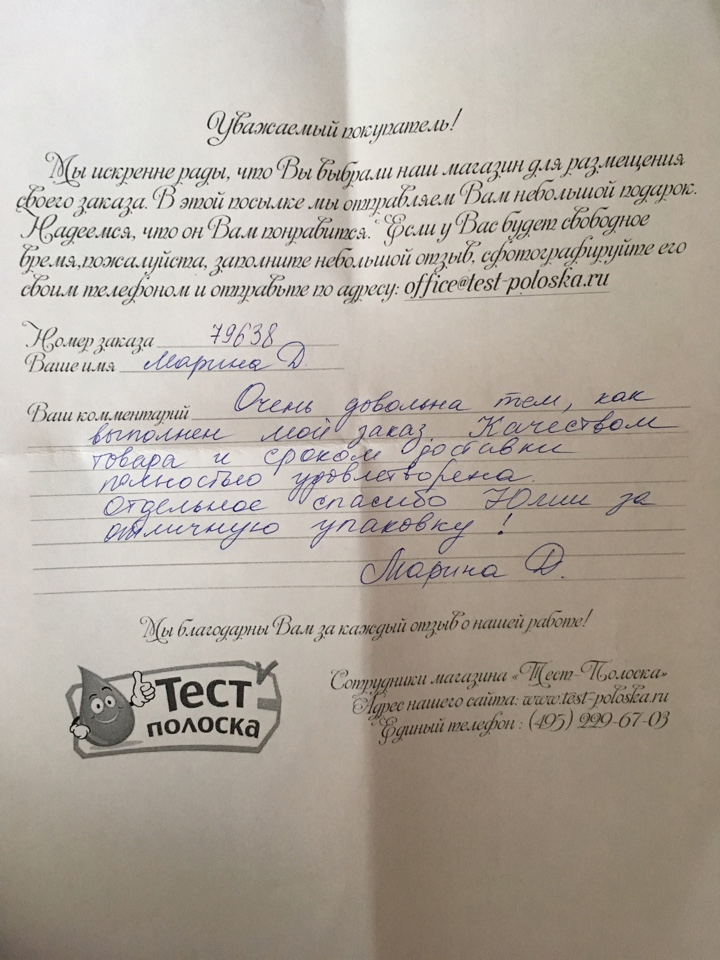 Уважаемый покупатель!
Мы искренне рады, что Вы выбрали наш магазин для размещения
своего заказа. В этой посылке мы отправляем Вам небольшой подарок.
Надеемся, что он Вам понравится. Если у Вас будет свободное
время,пожалуйста, заполните небольшой отзыв, сфотографируйте его
своим телефоном и отправьте по адресу: office@test-poloska.ru
Номер заказа 79638
Ваше имя Марина Д.
Ваш комментарий Очень довольна тем, как
выполнен мой заказ. Качеством
товара и сроком доставки
полностью удовлетворена.
Отдельное спасибо Юлии за
отличную упаковку!
Марина Д.
Мы благодарны Вам за каждый отзыв о нашей работе!
Тест
полоска
Сотрудники магазина «Тест-Полоска»
Адрес нашего сайта: www.test-poloska.ru
Единый телефон : (495) 229-67-03